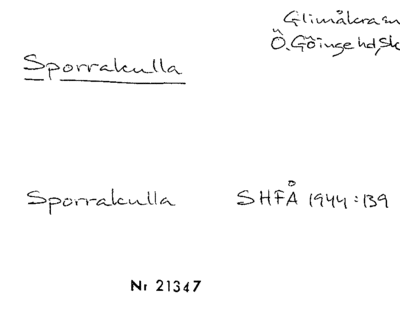 Glimåkra sn
Ö. Göinge hd, Sk
Sporrakulla
Sporrakulla SHFÅ 1944:139
Nr 21347